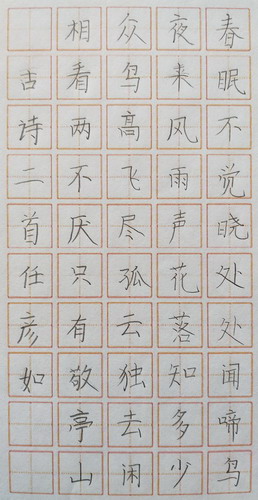 春眠不觉晓处处闻啼鸟
夜来风雨声花落知多少
众鸟高飞尽孤云独去闲
相看两不厌只有敬亭山
古诗二首任彦如